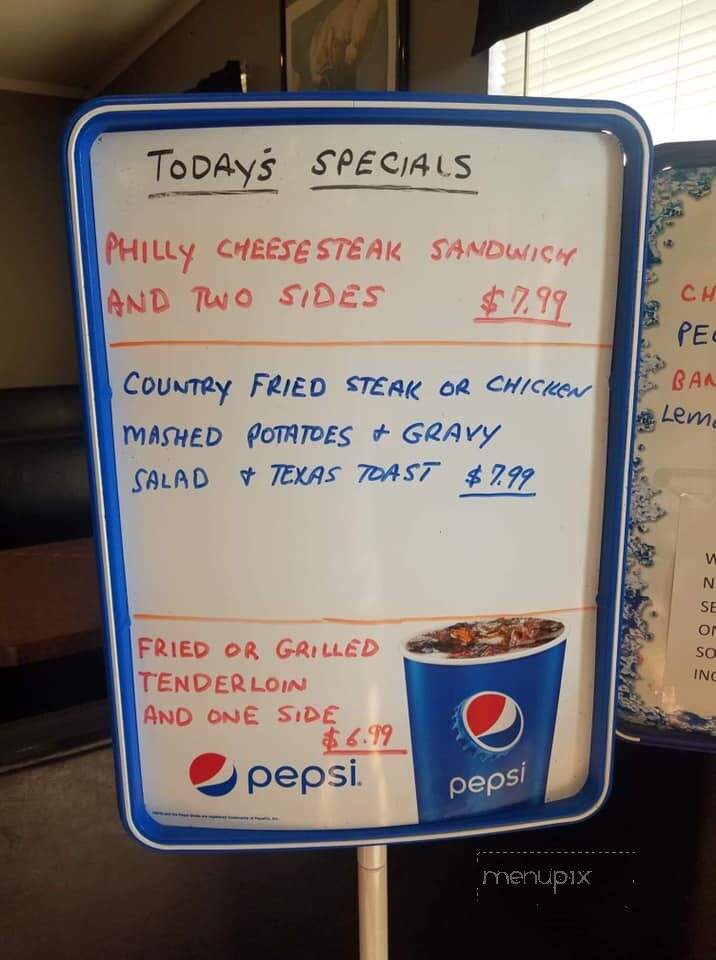 TODAY'S SPECIALS
PHILLY CHEESESTEAK SANDWICH
AND TWO SIDES $7.99
COUNTRY FRIED STEAK OR CHICKEN
MASHED POTATOES & GRAVY
SALAD & TEXAS TOAST $7.99
FRIED OR GRILLED
TENDERLOIN
AND ONE SIDE
$6.99
pepsi.
pepsi
CH
PE
BAN
Lem
W
N
SE
SO
INC
menupix